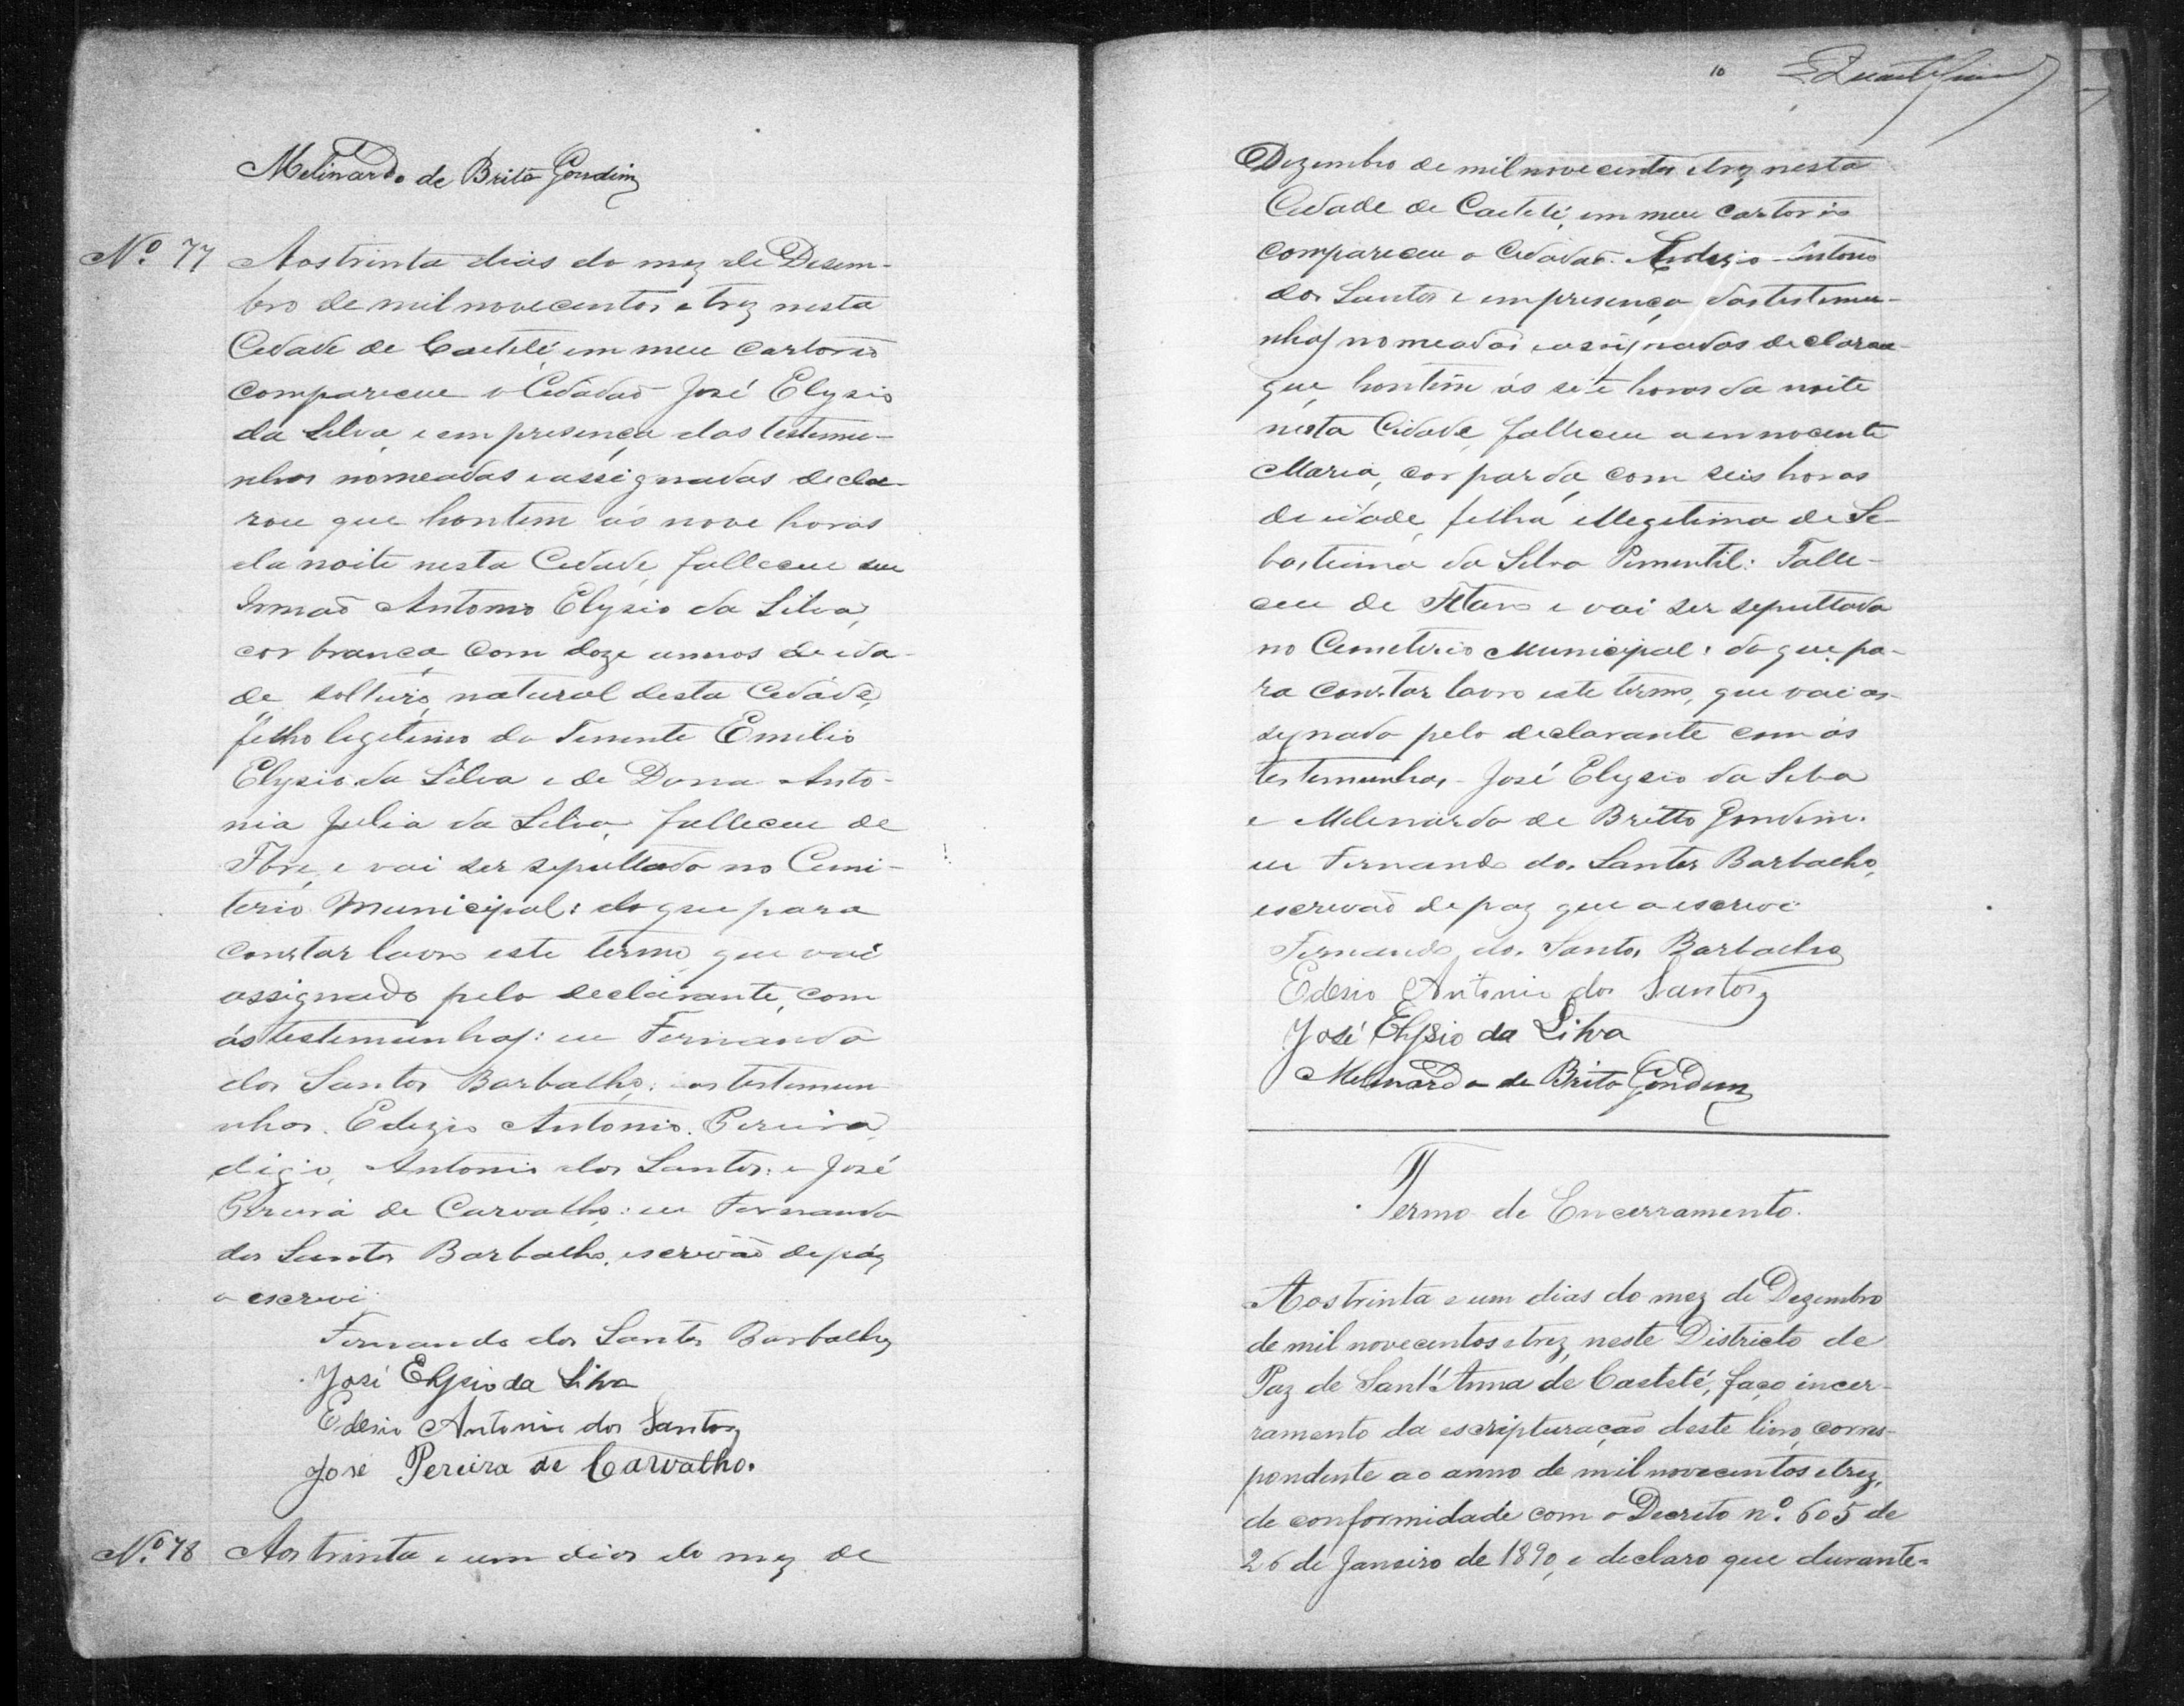 Melinardo de Brito Gondim
Nº 77 Aos trinta dias do mez de Desem-
bro de mil novecentos e trez nesta
Cidade de Caeteté, em meu cartorio
compareceu o Cidadão José Elysio
da Silva, e em presença das testemu-
nhas nomeadas e assignadas decla-
rou que hontem ás nove horas
da noite nesta Cidade, falleceu seu
Irmão Antonio Elysio da Silva,
cor branca, com doze annos de ida-
de, solteiro, natural desta Cidade,
filho legitimo do Tenente Emilio
Elysio da Silva e de Dona Anto-
nia Julia da Silva, falleceu de
e vai ser sepultado no Cemi-
terio Municipal: do que para
constar lavro este termo que vai
assignado pelo declarante, com
as testemunhas: eu Fernando
dos Santos Barbalho; as testemun
nhas. Edezio Antonio. Pereira,
digo, Antonio dos Santos: e José
Pereira de Carvalho: eu Fernando
dos Santos Barbalho, escrivão de páz
o escrevi
Fernando dos Santos Barbalho
José Elysio da Silva
Edesio Antonio dos Santos
José Pereira de Carvalho.
Nº 78 Aos trinta e um dias do mez de
10
Dezembro de mil novecentos e trez nesta
Cidade de Caeteté, em meu cartorio
compareceu o Cidadão Antonio
dos Santos e em presença das testemu-
nhas nomeadas e assignadas declarou
que hontem ás sete horas da noite
nesta Cidade, falleceu a innocente
Maria, cor parda, com seis horas
de idade, filha illegitima de Se-
bastiana da Silva Pimentel: Falle-
ceu de e vai ser sepultada
no Cemeterio Municipal: do que pa-
ra constar lavro este termo, que vai as-
signado pelo declarante com as
testemunhas José Elysio da Silva
e Melinardo de Britto Gondim.
eu Fernando dos Santos Barbalho,
escrivão de paz que o escrevi
Fernando dos Santos Barbalho
Edesio Antonio dos Santos
José Elysio da Silva
Melinardo de Brito Gondim
Termo de Encerramento.
Aos trinta e um dias do mez de Dezembro
de mil novecentos e trez, neste Districto de
Paz de Sant'Anna de Caeteté, faço incer-
ramento da escripturação deste livro, corres-
pondente ao anno de mil novecentos e trez,
de conformidade com o Decreto nº. 605 de
26 de Janeiro de 1890, e declaro que durante-